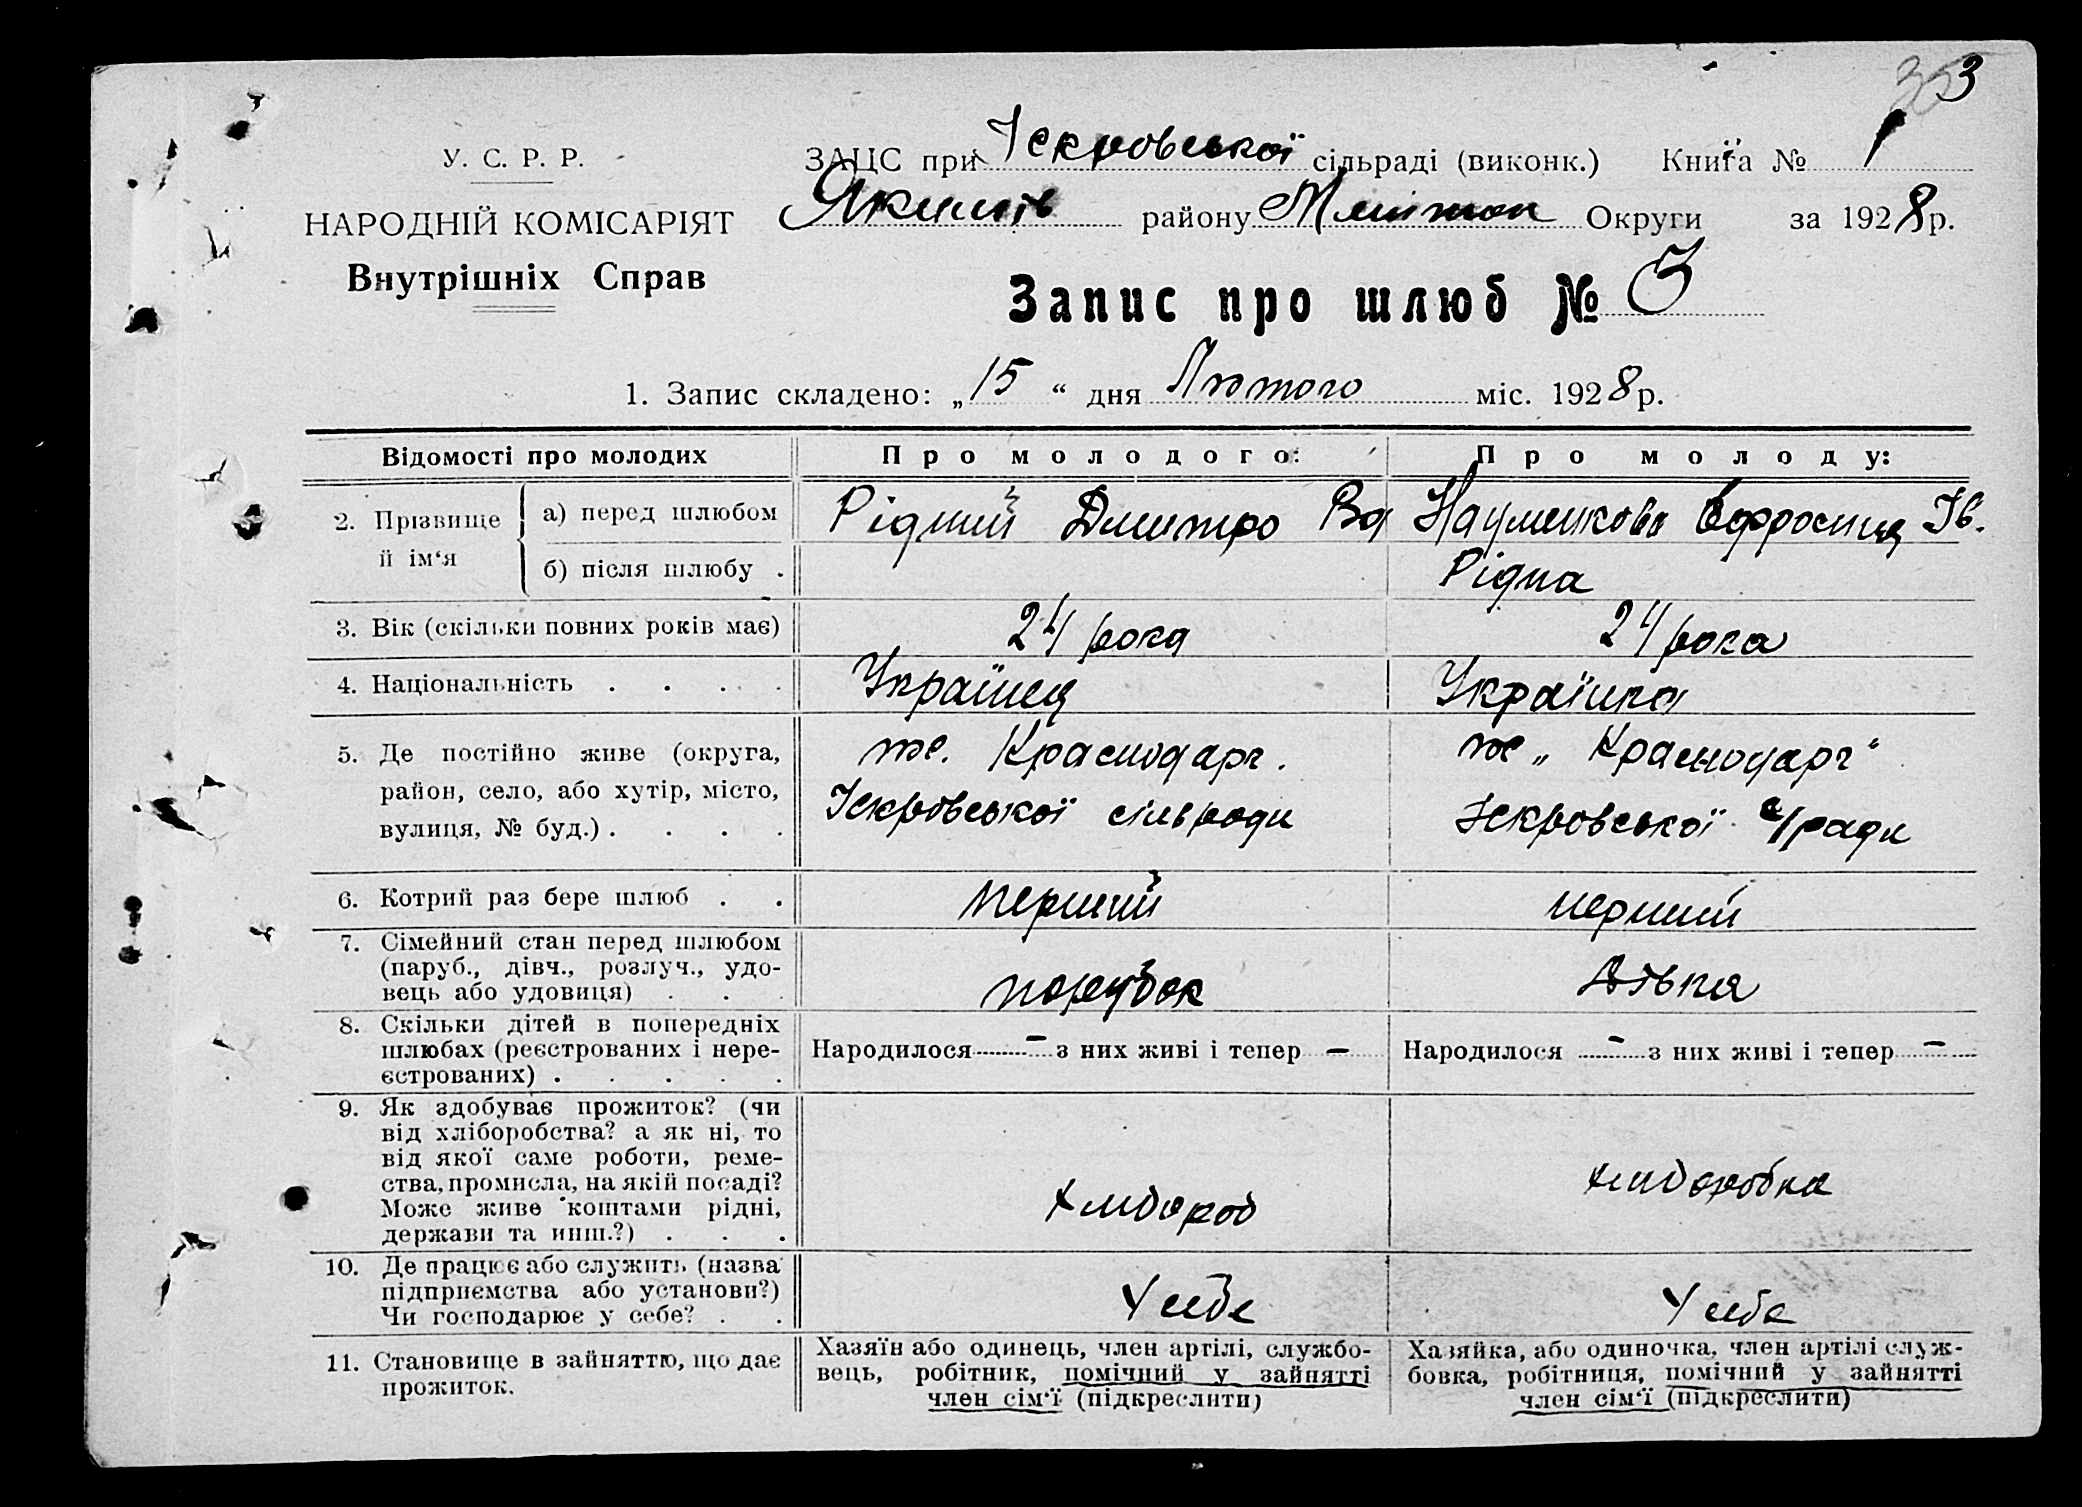 3
У. С. Р. Р.
ЗАЦС при Іскровської сільраді (виконк.) Книга № 1
НАРОДНІЙ КОМІСАРІЯТ
Якимів району Мелітоп Округи за 1928 р.
Внутрішніх Справ
Запис про шлюб № 3
1. Запис складено: „15“ дня Лютого міс. 1928 р.
Відомості про молодих
Про молодого:
Про молоду:
2. Прізвище й ім‘я
а) перед шлюбом
Рідний Дмитро
Науменкова Єфросиня Ів.
б) після шлюбу .
Рідна
3. Вік (скільки повних років має)
24 рока
24 рока
4. Національність . . . .
Українец
Українка
5. Де постійно живе (округа,
район, село, або хутір, місто,
вулиця, № буд.) . . . .
тв. Краснодарг.
Іскровської сільради
тв „Краснодарг“
Іскровської с/ради
6. Котрий раз бере шлюб . .
перший
перший
7. Сімейний стан перед шлюбом
(паруб., дівч., розлуч., удо-
вець або удовиця) . . .
порубок
Дівка
8. Скільки дітей в попередніх
шлюбах (реєстрованих і нере-
єстрованих) . . . . .
Народилося – з них живі і тепер –
Народилося – з них живі і тепер –
9. Як здобуває прожиток? (чи
від хліборобства? а як ні, то
від якої саме роботи, реме-
ства, промисла, на якій посаді?
Може живе коштами рідні,
держави та инш.?) . . .
хлібороб
хліборобка
10. Де працює або служить (назва
підприємства або установи?)
Чи господарює у себе? . .
У себе
У себе
11. Становище в зайняттю, що дає
прожиток.
Хазяїн або одинець, член артілі, службо-
вець, робітник, помічний у зайнятті
член сім‘ї (підкреслити)
Хазяйка, або одиночка, член артілі служ-
бовка, робітниця, помічний у зайнятті
член сім‘ї (підкреслити)